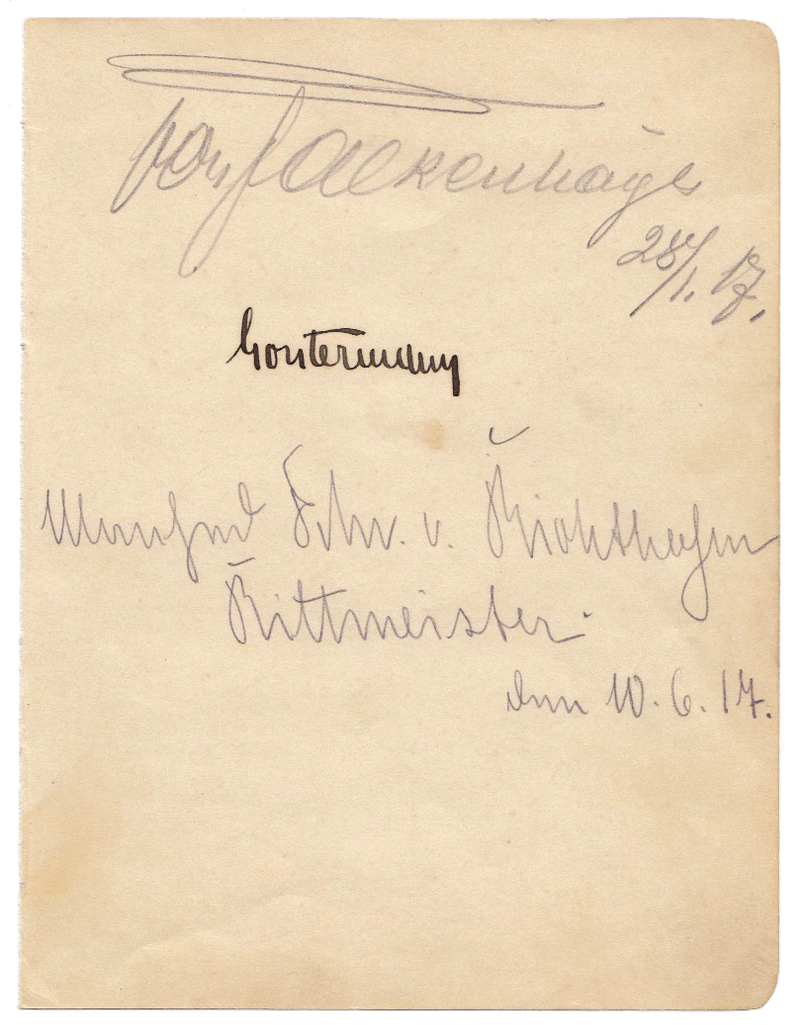 von Falkenhayn
28/1. 17.
Gontermann
Manfred Frhr. v. Richthofen
Rittmeister.
den 10. 6. 17.